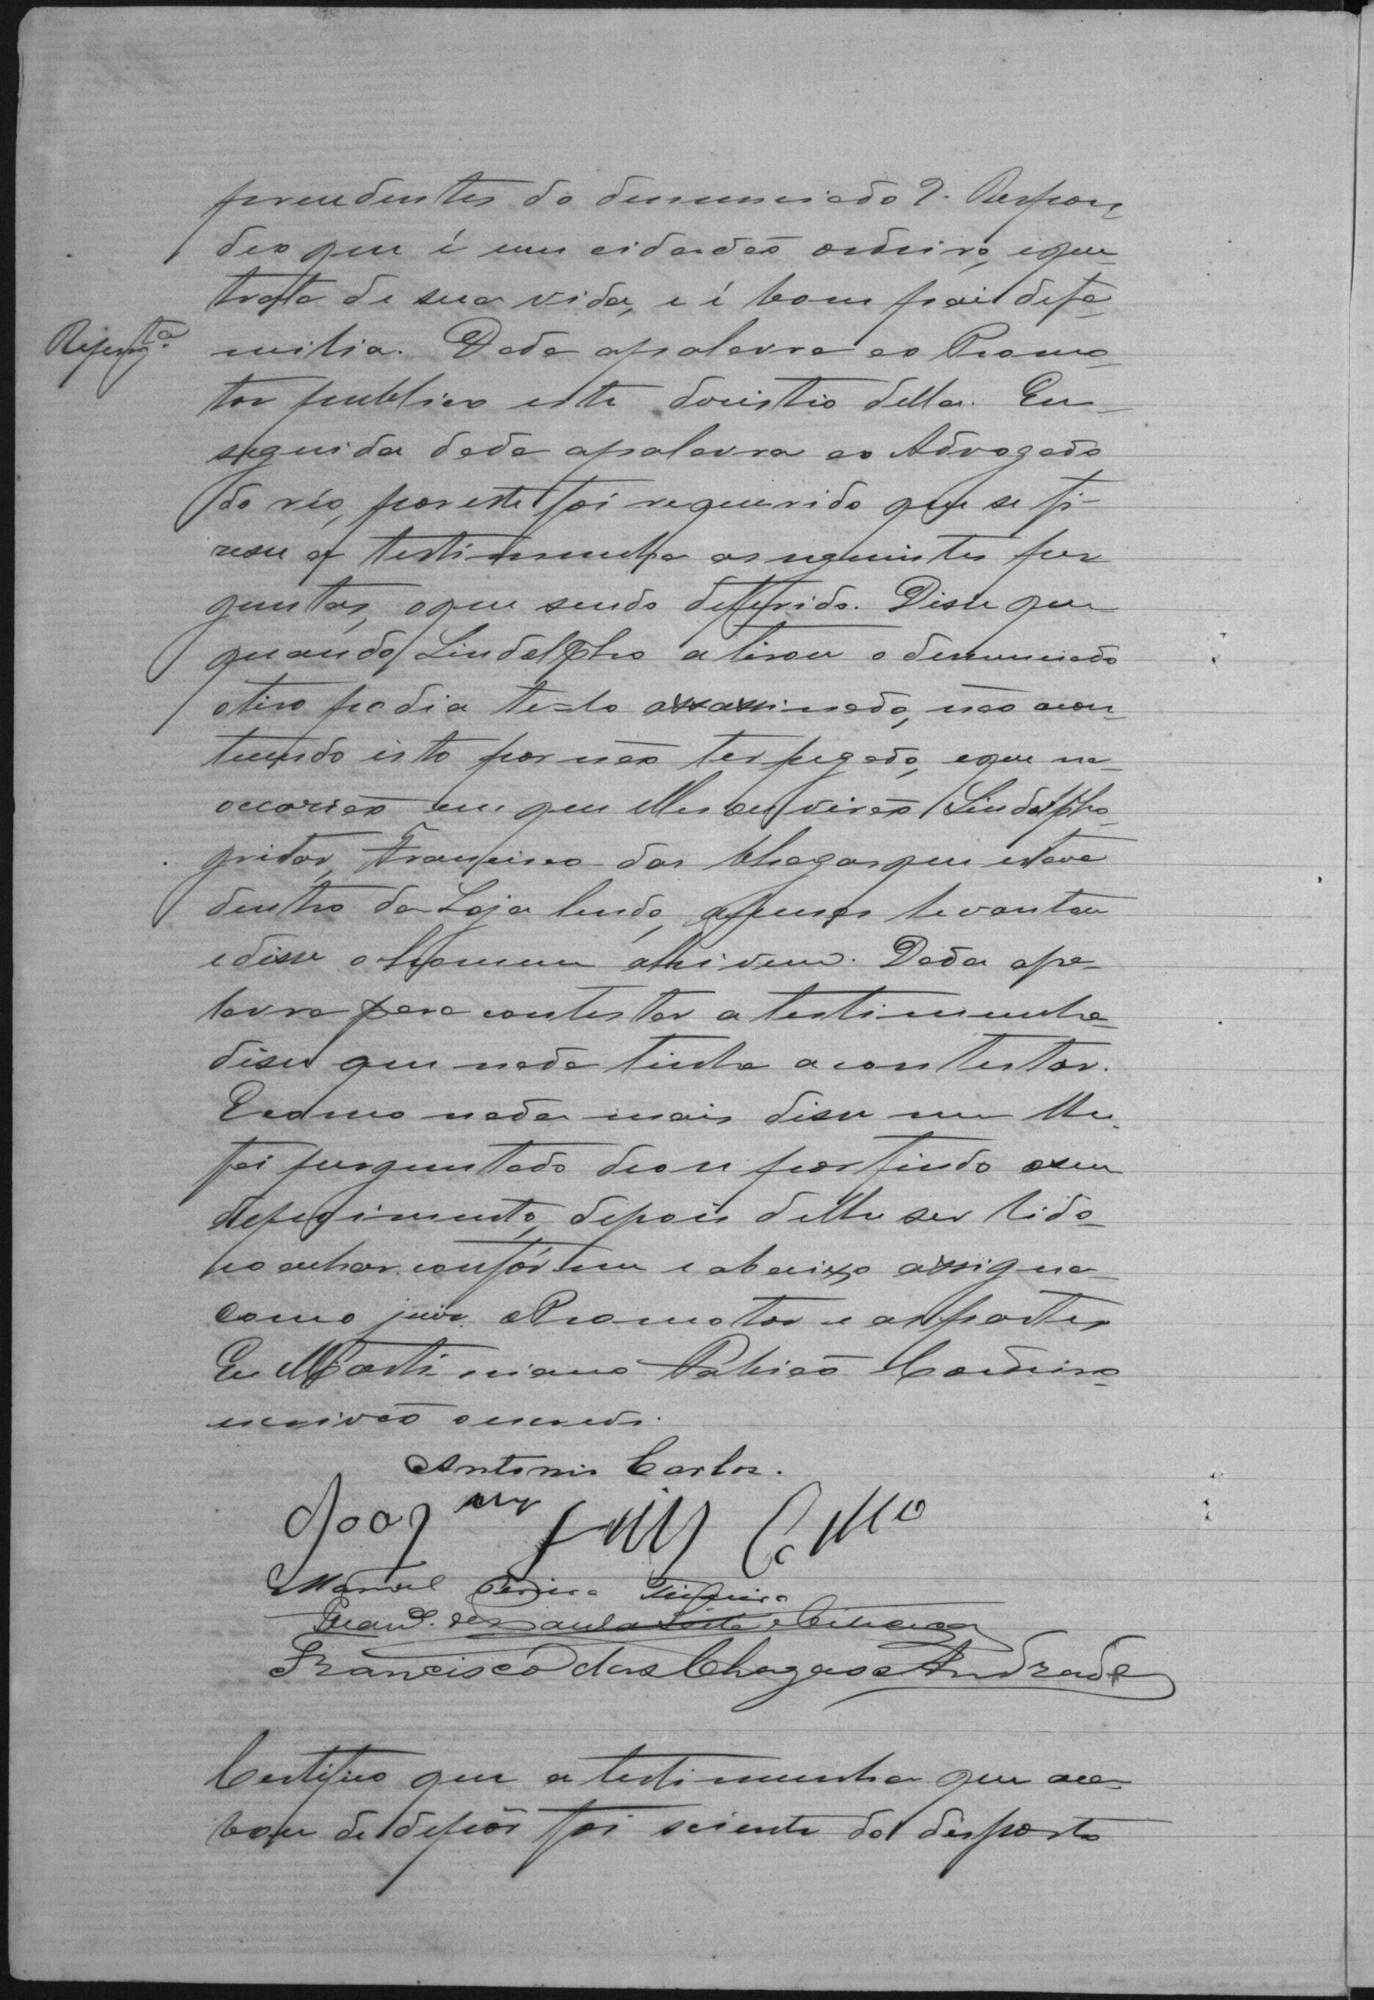 procedentes do denunciado? Respon-
deo que é um cidadão ordeiro, e que
trata de sua vida, e é bom pai de fa-
milia. Dada a palavra ao Promo-
tor publico este desistio della. Em
seguida dada a palavra ao Advogado
do réo, por este foi requerido que se fi-
zesse a testimunha as seguintes per
guntas, o que sendo defferido. Disse que
quando Lindolpho atirou o denunciado
o tiro podia tel-o assassinado, não acon-
tecendo isto por não ter pegado, e que na
occasião em que elles ouvirão Lindolpho
gritar, Francisco das Chagas que estava
dentro da Loja lendo, apenas levantou
e disse o homem ahi vem. Dada a pa-
lavra para contestar a testimunha
disse que nada tinha a contestar.
E como nada mais disse nem lhe
foi perguntado deo-se por findo o seu
depoimento, depois delle ser lido
e o achar confórme e abaixo assigna
com o juiz o Promotor e as partes
Eu Martiniano Cordeiro
escrivão o escrevi.
Antonio Carlos.
Joaqm Luiz Collo
Manoel Pereira
Francº. de Paula
Francisco das Chagas e Andrade
Certifico que a testimunha que aca-
bou de depôr foi sciente do disposto